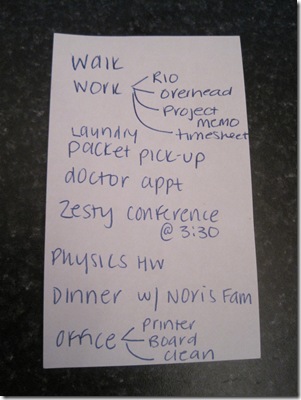 walk
work
RIO
overhead
project
memo
timesheet
laundry
packet pick-up
doctor appt
zesty conference
@ 3:30
PHYSICS HW
DINNER W/ NORIS FAM
OFFICE
printer
Board
clean